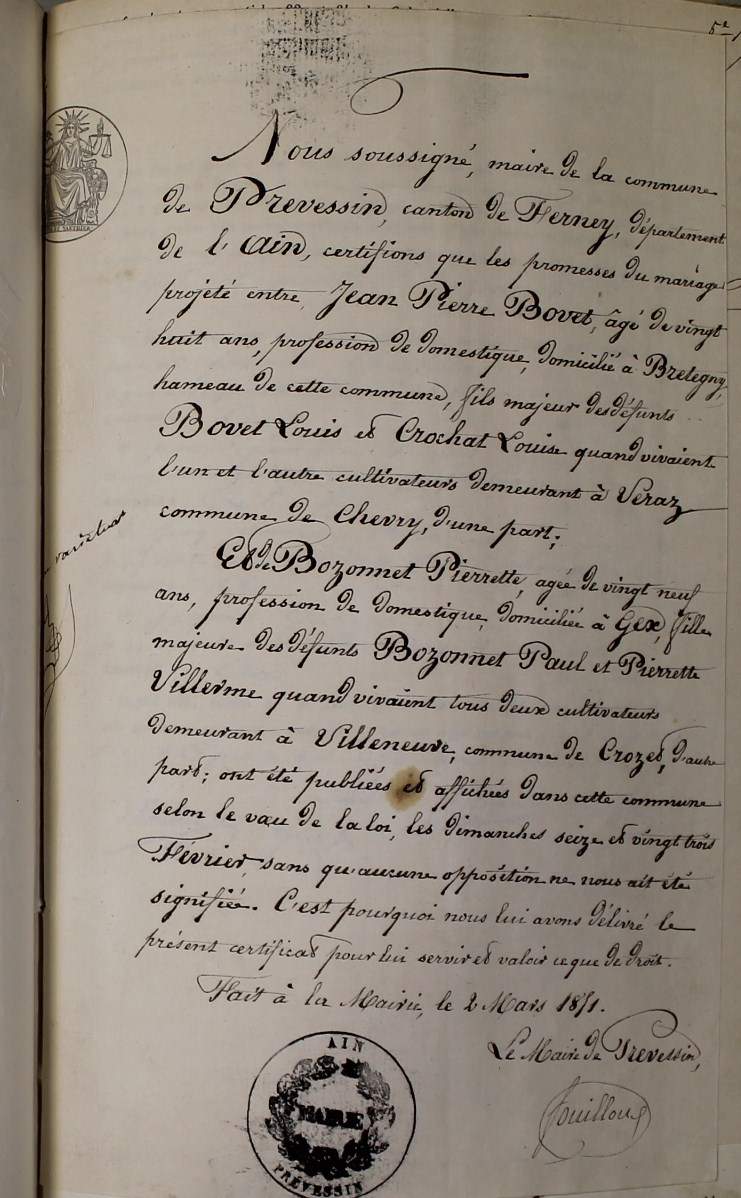 5e
Nous soussigné, maire de la commune
de Prevessin, canton de Ferney, département
de l'Ain, certifions que les promesses du mariage
projeté entre Jean Pierre Bovet, âgé de vingt
huit ans, profession de domestique, domicilié à Bretegny,
hameau de cette commune, fils majeur des défunts
Bovet Louis et Crochat Louise quand vivaient
l'un et l'autre cultivateurs demeurant à Veraz
commune de Chevry, d'une part;
Et de Bozonnet Pierrette, agée de vingt neuf
ans, profession de domestique, domiciliée à Gex, fille
majeure des défunts Bozonnet Paul et Pierrette
Villerme quand vivaient tous deux cultivateurs
demeurant à Villeneuve, commune de Crozet, d'autre
part; ont été publiées et affichées dans cette commune
selon le vœu de la loi, les dimanches seize et vingt trois
Février, sans qu'aucune opposition ne nous ait été
signifiée. C'est pourquoi nous lui avons délivré le
présent certificat pour lui servir et valoir ce que de droit.
Fait à la Mairie, le 2 Mars 1851.
Le Maire de Prevessin,
AIN
MAIRIE
PRÉVESSIN